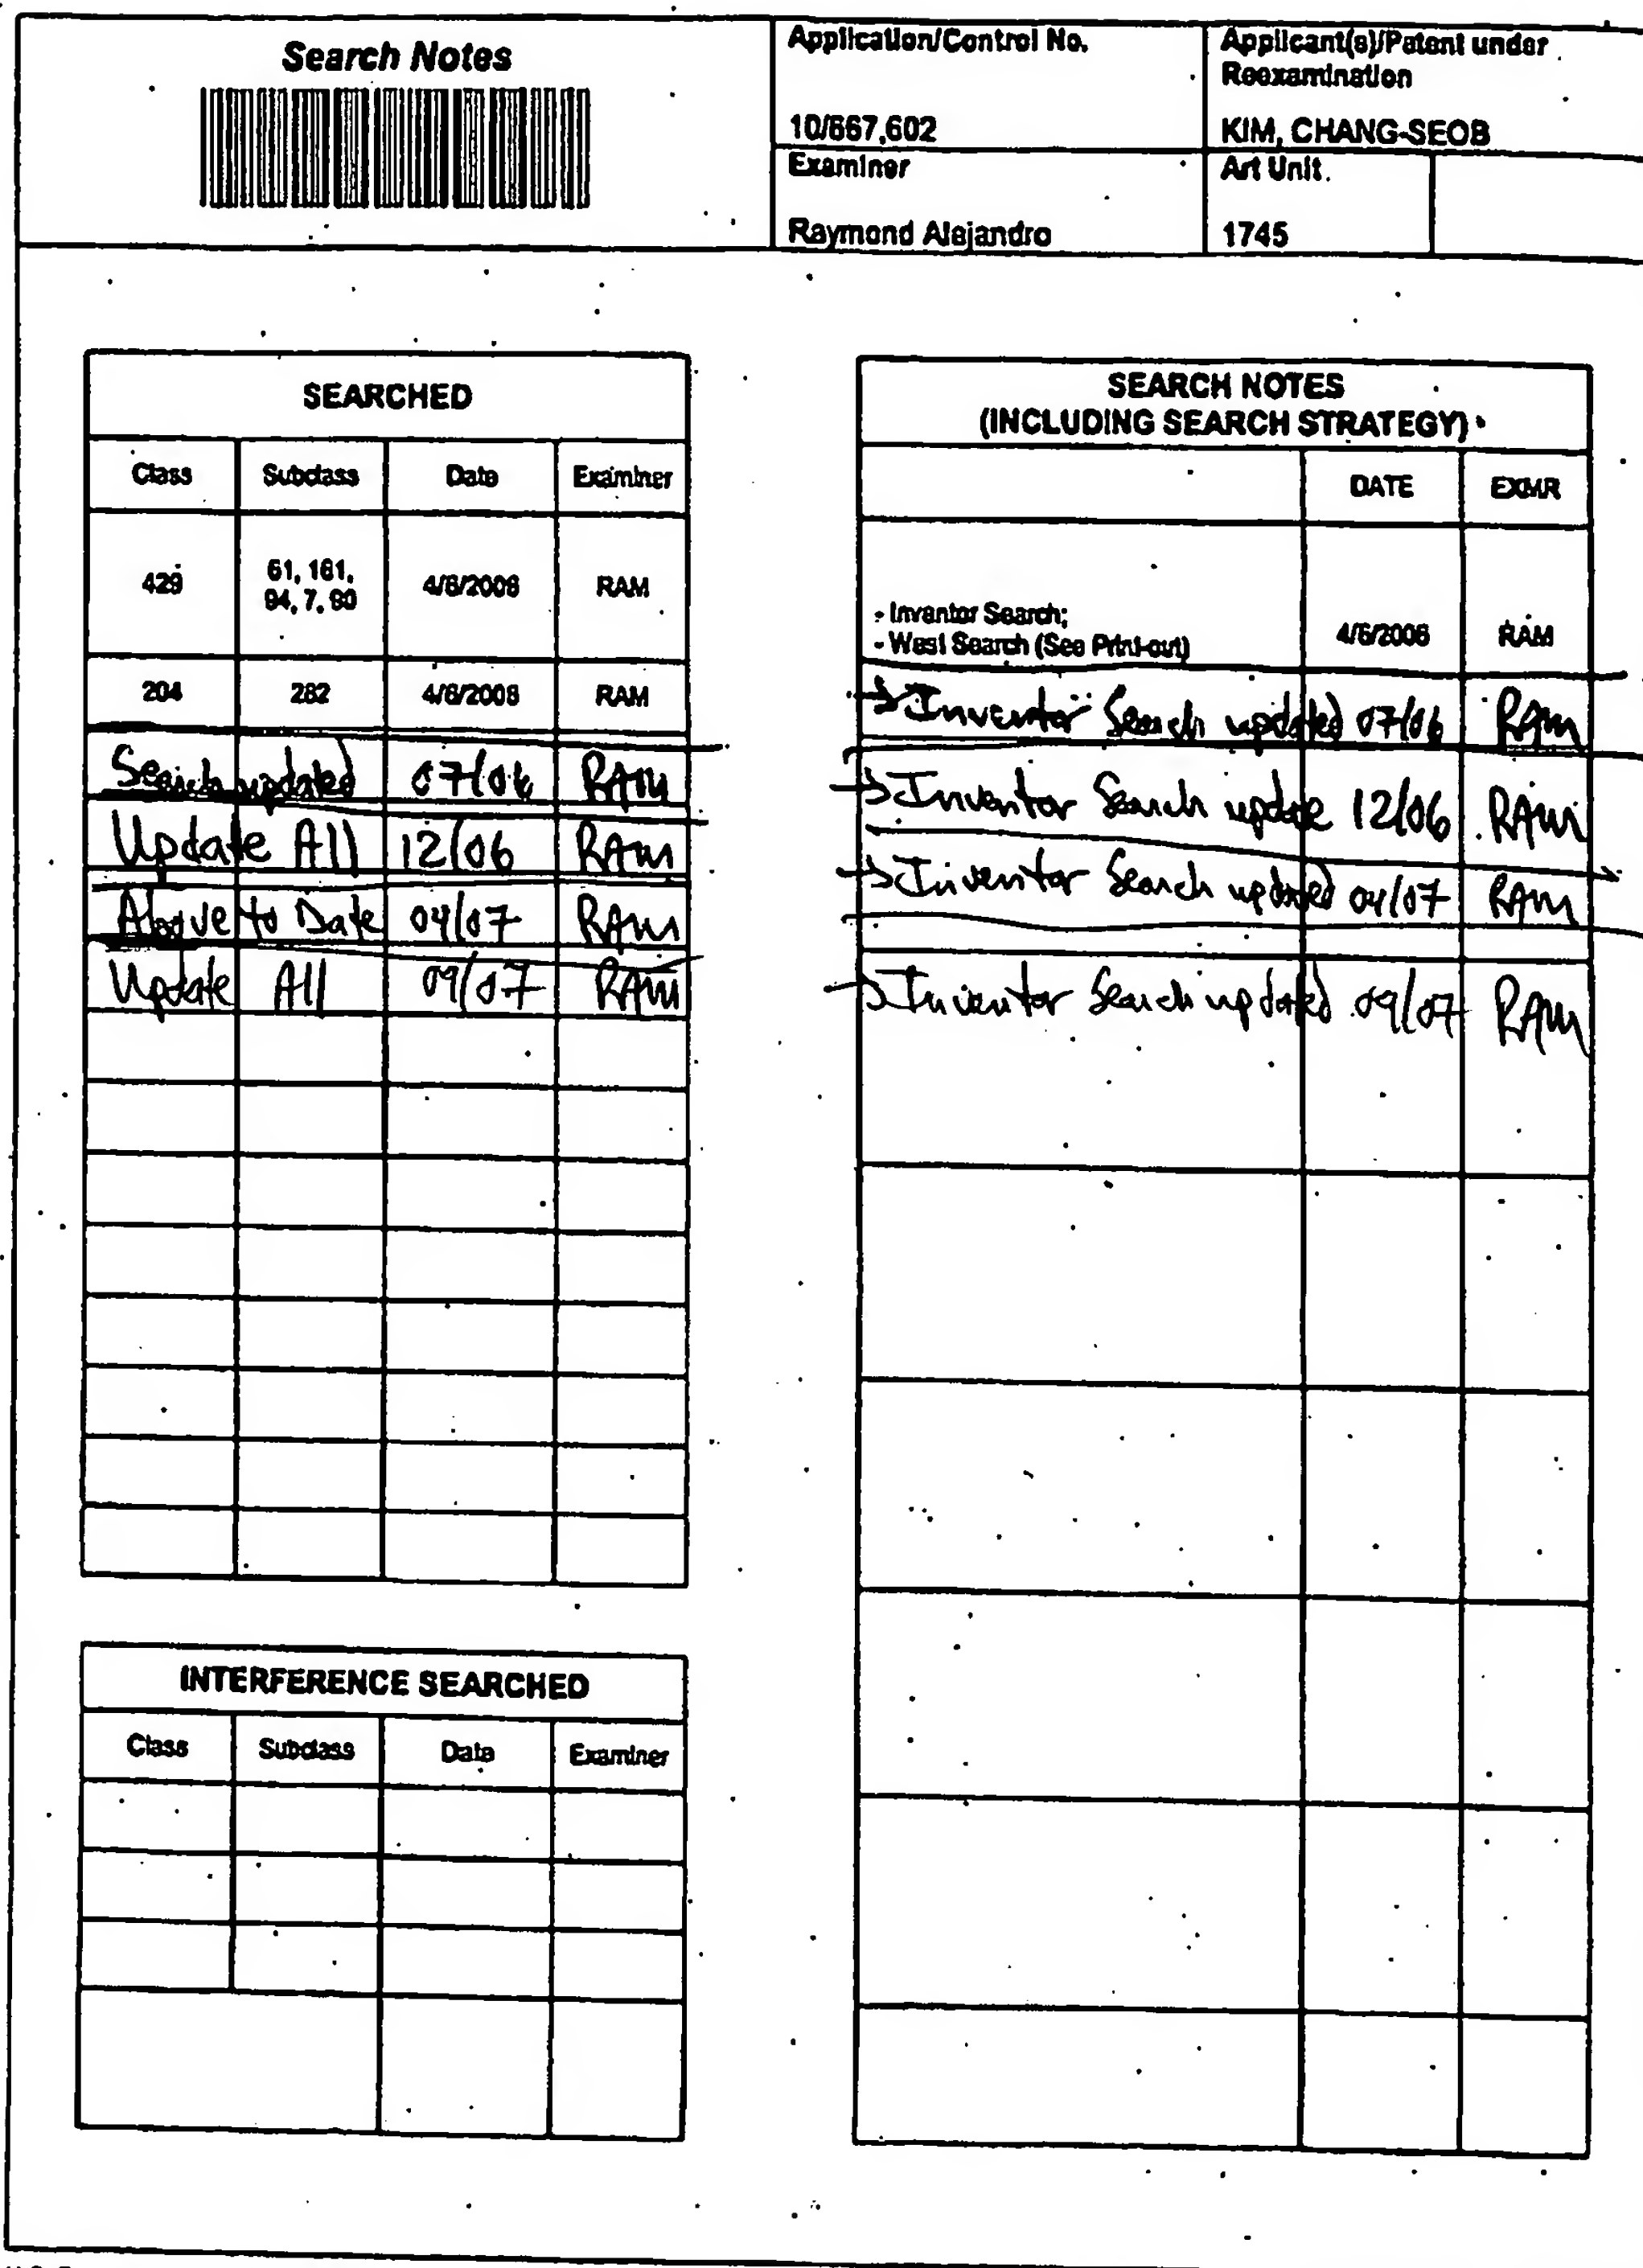 Search Notes
Application/Control No.
10/667,602
Applicant(s)/Patent under
Reexamination
KIM, CHANG-SEOB
Examiner
Raymond Alejandro
Art Unit
1745
SEARCHED
Class Subclass Date Examiner
429 61, 161, 94, 7, 90 4/6/2006 RAM
204 282 4/6/2006 RAM
Search updated 07/06 RAM
Update All 12/06 RAM
Above to Date 04/07 RAM
Update All 09/07 RAM
INTERFERENCE SEARCHED
Class Subclass Date Examiner
SEARCH NOTES
(INCLUDING SEARCH STRATEGY)
DATE EXMR
- Inventor Search;
- West Search (See Print-out) 4/6/2006 RAM
→ Inventor Search updated 07/06 RAM
→ Inventor Search update 12/06 RAM
→ Inventor Search updated 04/07 RAM
→ Inventor Search updated 09/07 RAM